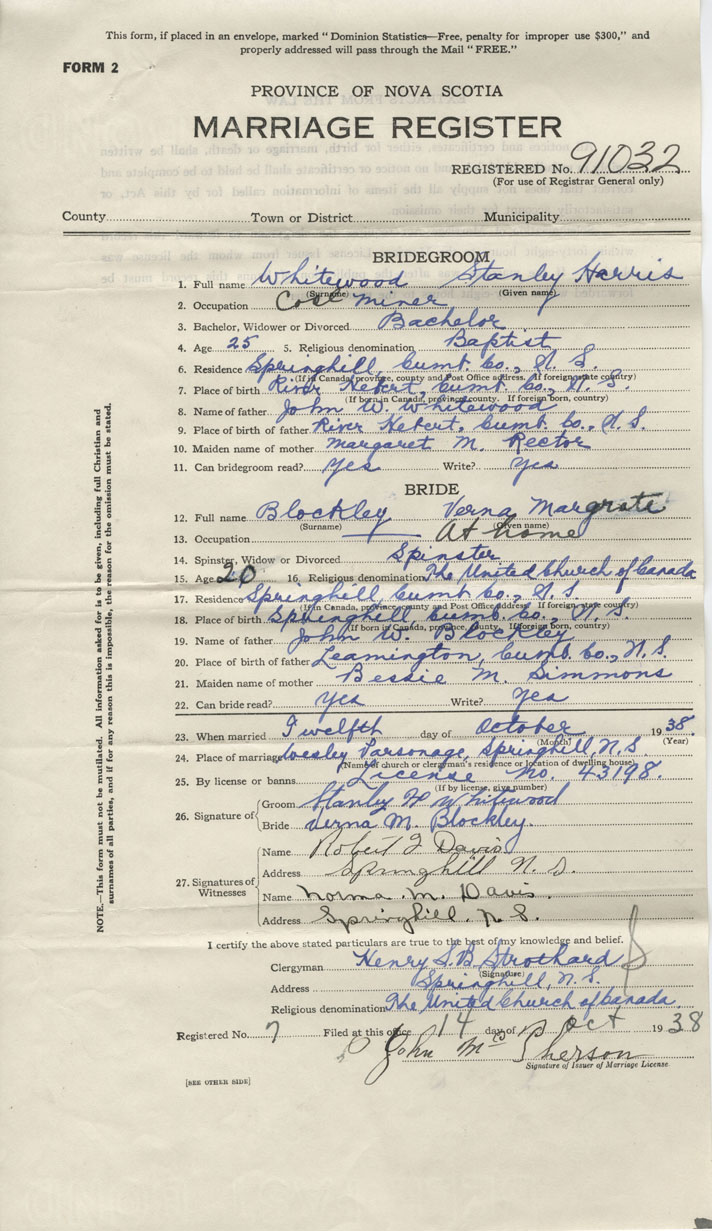 This form, if placed in an envelope, marked "Dominion Statistics—Free, penalty for improper use $300," and
properly addressed will pass through the Mail "FREE."
FORM 2
PROVINCE OF NOVA SCOTIA
MARRIAGE REGISTER
REGISTERED No. 91032
(For use of Registrar General only)
County Town or District Municipality
BRIDEGROOM
1. Full name Whitewood Stanley Harris
(Surname) (Given name)
2. Occupation Coal Miner
3. Bachelor, Widower or Divorced Bachelor
4. Age 25 5. Religious denomination Baptist
6. Residence Springhill, Cumb. Co., N. S.
(If in Canada, province, county and Post Office address. If foreign state country)
7. Place of birth River Hebert, Cumb. Co., N. S.
(If born in Canada, province, county. If foreign born, country)
8. Name of father John W. Whitewood
9. Place of birth of father River Hebert, Cumb. Co., N. S.
10. Maiden name of mother Margaret M. Rector
11. Can bridegroom read? Yes Write? Yes
BRIDE
12. Full name Blockley Verna Margrate
(Surname) (Given name)
13. Occupation At home
14. Spinster, Widow or Divorced Spinster
15. Age 20 16. Religious denomination The United Church of Canada
17. Residence Springhill, Cumb. Co., N. S.
(If in Canada, province, county and Post Office address. If foreign state country)
18. Place of birth Springhill, Cumb. Co., N. S.
(If born in Canada, province, county. If foreign born, country)
19. Name of father John W. Blockley
20. Place of birth of father Leamington, Cumb. Co., N. S.
21. Maiden name of mother Bessie M. Simmons
22. Can bride read? Yes Write? Yes
23. When married Twelfth day of October 1938.
(Month) (Year)
24. Place of marriage Wesley Parsonage, Springhill, N. S.
(Name of church or clergyman's residence or location of dwelling house)
25. By license or banns License No. 43198.
(If by license, give number)
26. Signature of
Groom Stanley H Whitewood
Bride Verna M. Blockley.
27. Signatures of Witnesses
Name Robert J Davis
Address Springhill N. S.
Name Norma. M. Davis.
Address Springhill. N. S.
I certify the above stated particulars are true to the best of my knowledge and belief.
Clergyman Henry S.B. Strothard
(Signature)
Address Springhill, N. S.
Religious denomination The United Church of Canada.
Registered No. 7 Filed at this office 14 day of Oct 1938
John McPherson
Signature of Issuer of Marriage License
[SEE OTHER SIDE]
NOTE.—This form must not be mutilated. All information asked for is to be given, including full Christian and
surnames of all parties, and if for any reason this is impossible, the reason for the omission must be stated.